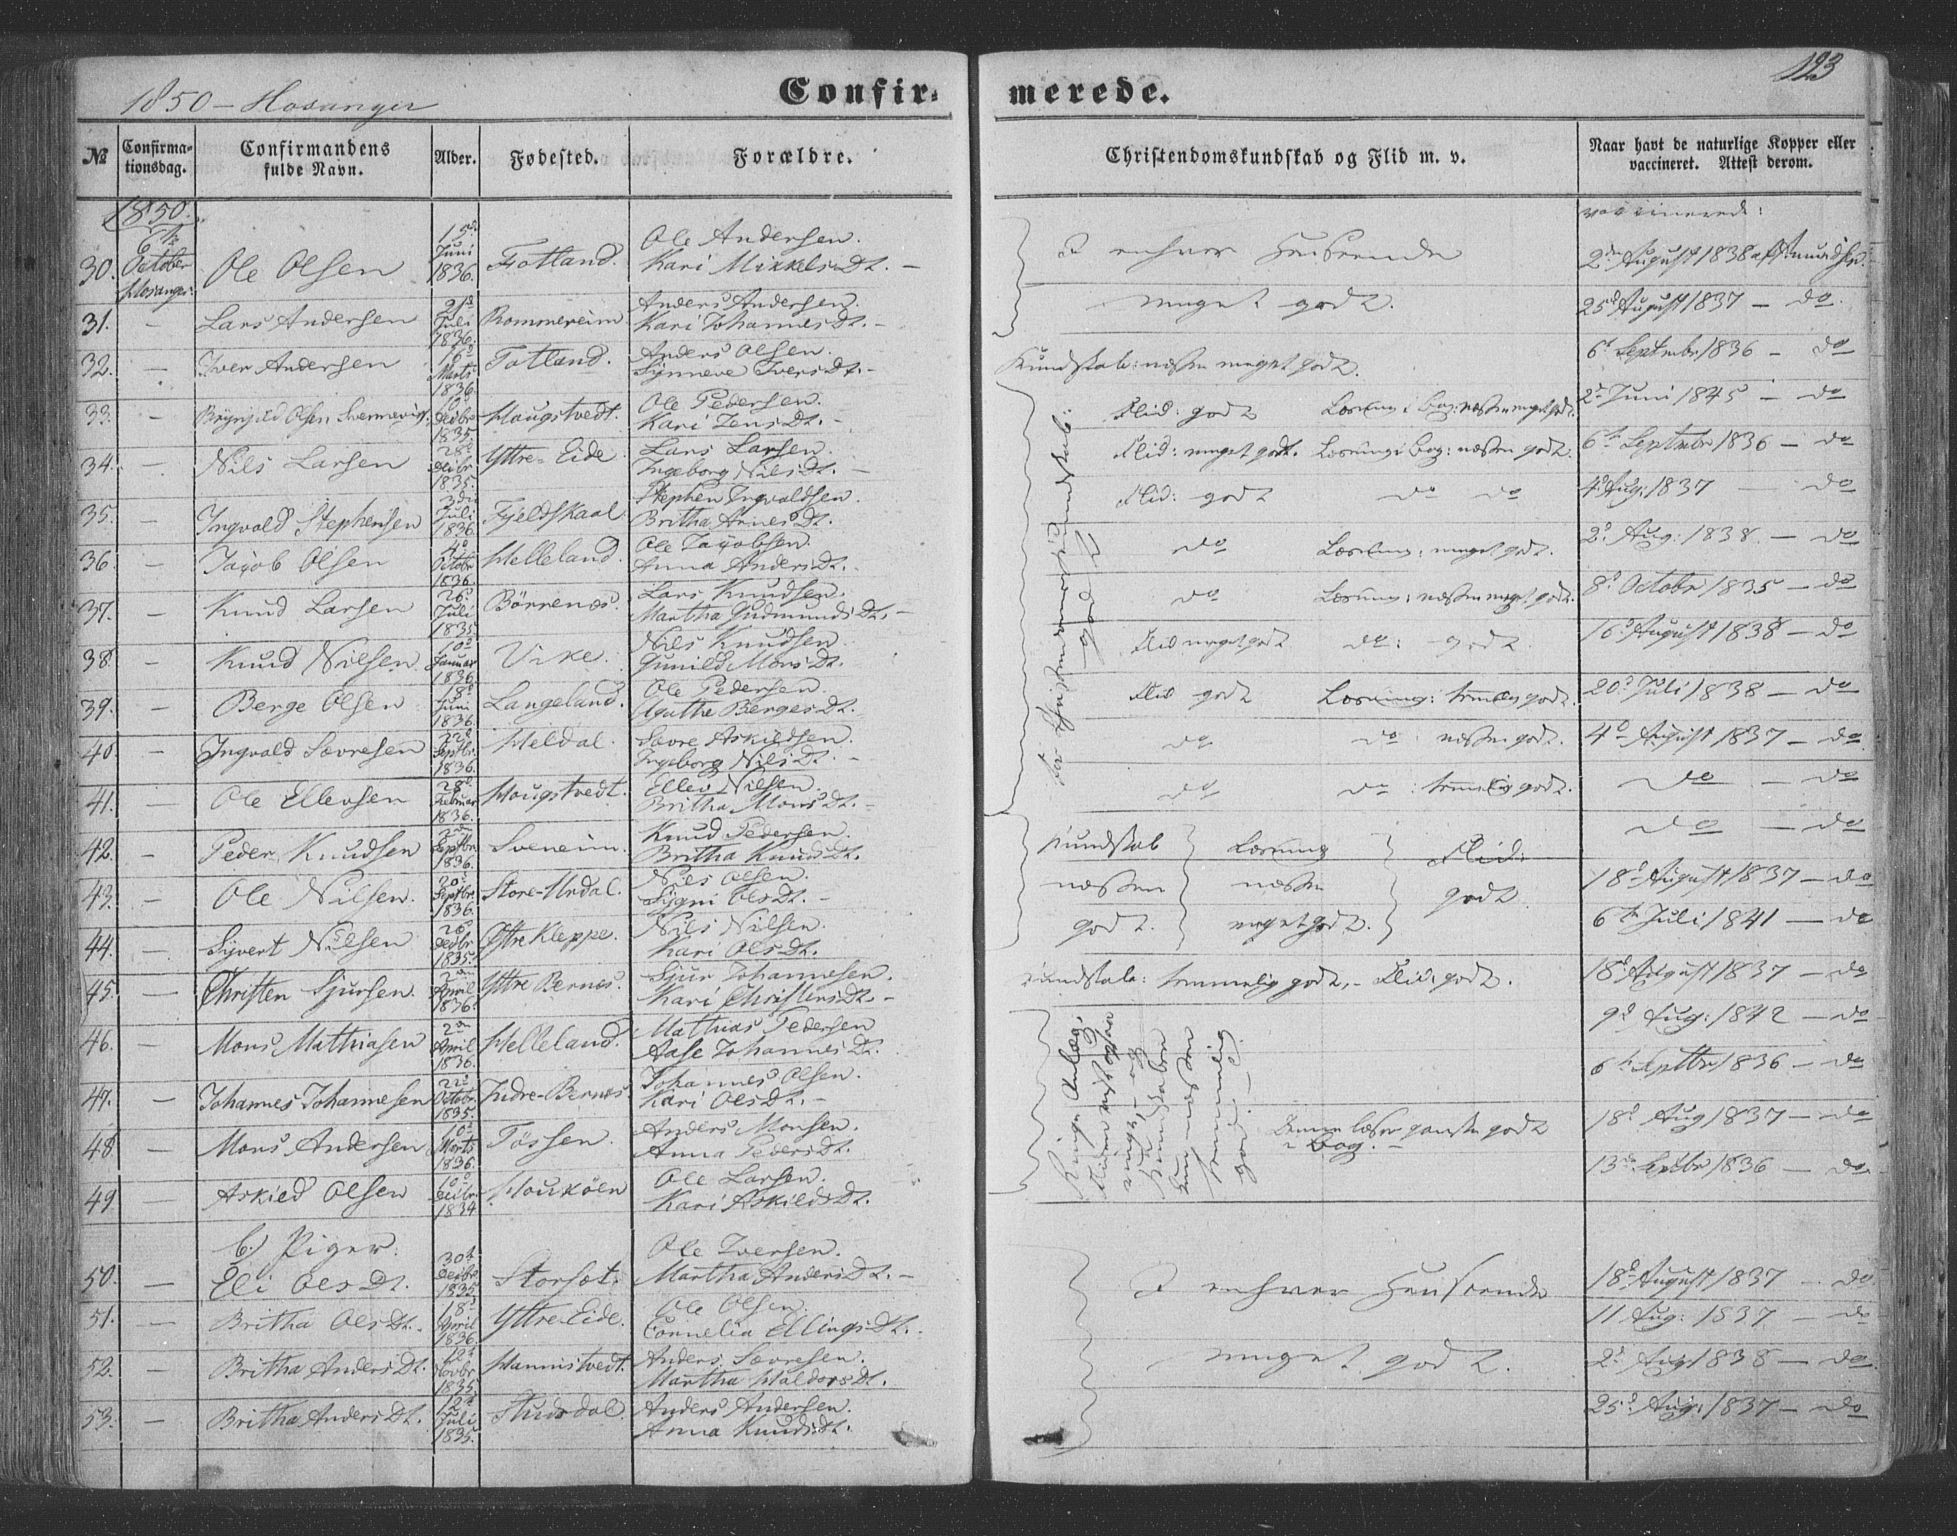 1850 – Hosanger
Confir-
merede.
123
№
Confirma-
tionsdag.
Confirmandens
fulde Navn.
Alder.
Fødested.
Forældre.
Christendomskundskab og Flid m. v.
Naar havt de naturlige Kopper eller
vaccineret. Attest derom.
1850.
vaccinerede:
30. 6te October Hosanger Ole Olsen 15d Juni 1836. Fotland. Ole Andersen. Kari MikkelsDt. –
I enhver Henseende
2den August 1838 af
31. – Lars Andersen 21d Juli 1836. Rommereim Anders Andersen. Kari JohannesDt. –
meget godt.
25d August 1837 – do.
32. – Iver Andersen 16d Marts 1836. Totland. Anders Olsen. Synneve IversDt. –
Kundskab: næsten meget godt.
6t Septembr 1836 – do
33. – Olsen Decbr 1835. Hougstvedt. Ole Pedersen. Kari JensDt. –
Flid: godt Læsning i Bog: næsten meget godt.
2d Juni 1845 – do
34. – Nils Larsen 28d Decbr 1835. Yttre-Eide Lars Larsen. Ingeborg NilsDt. –
Flid: meget godt. Læsning i Bog: næsten godt.
6te Septmbr 1836 – do
35. – Ingvald Stephensen 3die Juli 1836. Fjeldskaal Stephen Ingvaldsen. Britha ArnesDt.
Flid: godt do do
4d Aug: 1837 – do
36. – Jacob Olsen 4d Octobr 1836. Helleland. Ole Jacobsen. Anna AndersDt. –
do Læsning: meget godt.
2d Aug: 1838. – do
37. – Knud Larsen 26d Juli 1835. Börrenæs. Lars Knudsen. Martha GudmundsDt. –
do Læsning: næsten meget godt.
8d Octobr 1835 – do
38. – Knud Nilsen 10d Januar 1836. Vike. Nils Knudsen. Gunild MonsDt.
Flid meget godt do: godt
16d August 1838 – do
39. – Berge Olsen 18d Juni 1836. Langeland. Ole Pedersen. Agatha BergesDt.
Flid godt Læsning: temlig godt.
20d Juli 1838 – do
40. – Ingvald Sævresen 22d Septbr. 1836. Heldal. Sævre Askildsen. Ingeborg NilsDt. –
do do: næsten godt.
4d August 1837 – do
41. – Ole Ellevsen 28d Februar 1836. Hougstvedt. Ellev Nilsen. Britha MonsDt. –
do do: temmelig godt.
do – do
42. – Peder Knudsen 2den Septbr 1836. Sveneim. Knud Pedersen. Britha KnudsDt.
do – do
43. – Ole Nilsen. 20d Septbr. 1836. Store-Urdal. Nils Olsen. Sygni OlesDt. –
18d August 1837 – do
44. – Syvert Nilsen 26d Decbr. 1835. Yttre Kleppe. Nils Nilsen. Kari OlesDt.
6te Juli 1841 – do
Kundskab næsten godt. Læsning næsten meget godt. Flid: godt.
45. – Christen Sjursen. 2den April 1836. Yttre Bernes. Sjur Johannesen. Kari ChristensDt –
Kundskab: temmelig godt, – Flid: godt.
18d August 1837 – do
46. – Mons Mathiasen 2den April 1836. Helleland. Mathias Pedersen Aase JohannesDt.
9d Aug: 1842 – do
47. – Johannes Johannesen 22d Octobr 1835. Indre-Bernes. Johannes Olsen. Kari OlesDt. –
6te Septbr 1836 – do
48. – Mons Andersen 10d Marts 1836. Tössen. Anders Monsen. Anna PedersDt.
læser ganske godt i Bog. –
18d Aug 1837 – do
49. – Askild Olsen 10d Decbr. 1834 Ole Larsen. Kari AskildsDt.
13de Septbr 1836 – do.
b.) Piger.
50. – Eli OlesDt. 30t Decbr. 1835. Storset. Ole Iversen. Martha AndersDt. –
I enhver Henseende
18d August 1837 – do.
51. – Britha OlesDt. 18d April 1836. Yttre-Eide. Ole Olsen. Cornelia EllingsDt.
11 Aug: 1837 – do
52. – Britha AndersDt. 12t Novbr 1835. Hannistvedt. Anders Sævresen. Martha HaldorsDt.
meget godt.
2d Aug 1838 – do
53. – Britha AndersDt. 12d Juli 1835. Stusdal. Anders Andersen. Anna KnudsDt.
25d Aug: 1837 – do